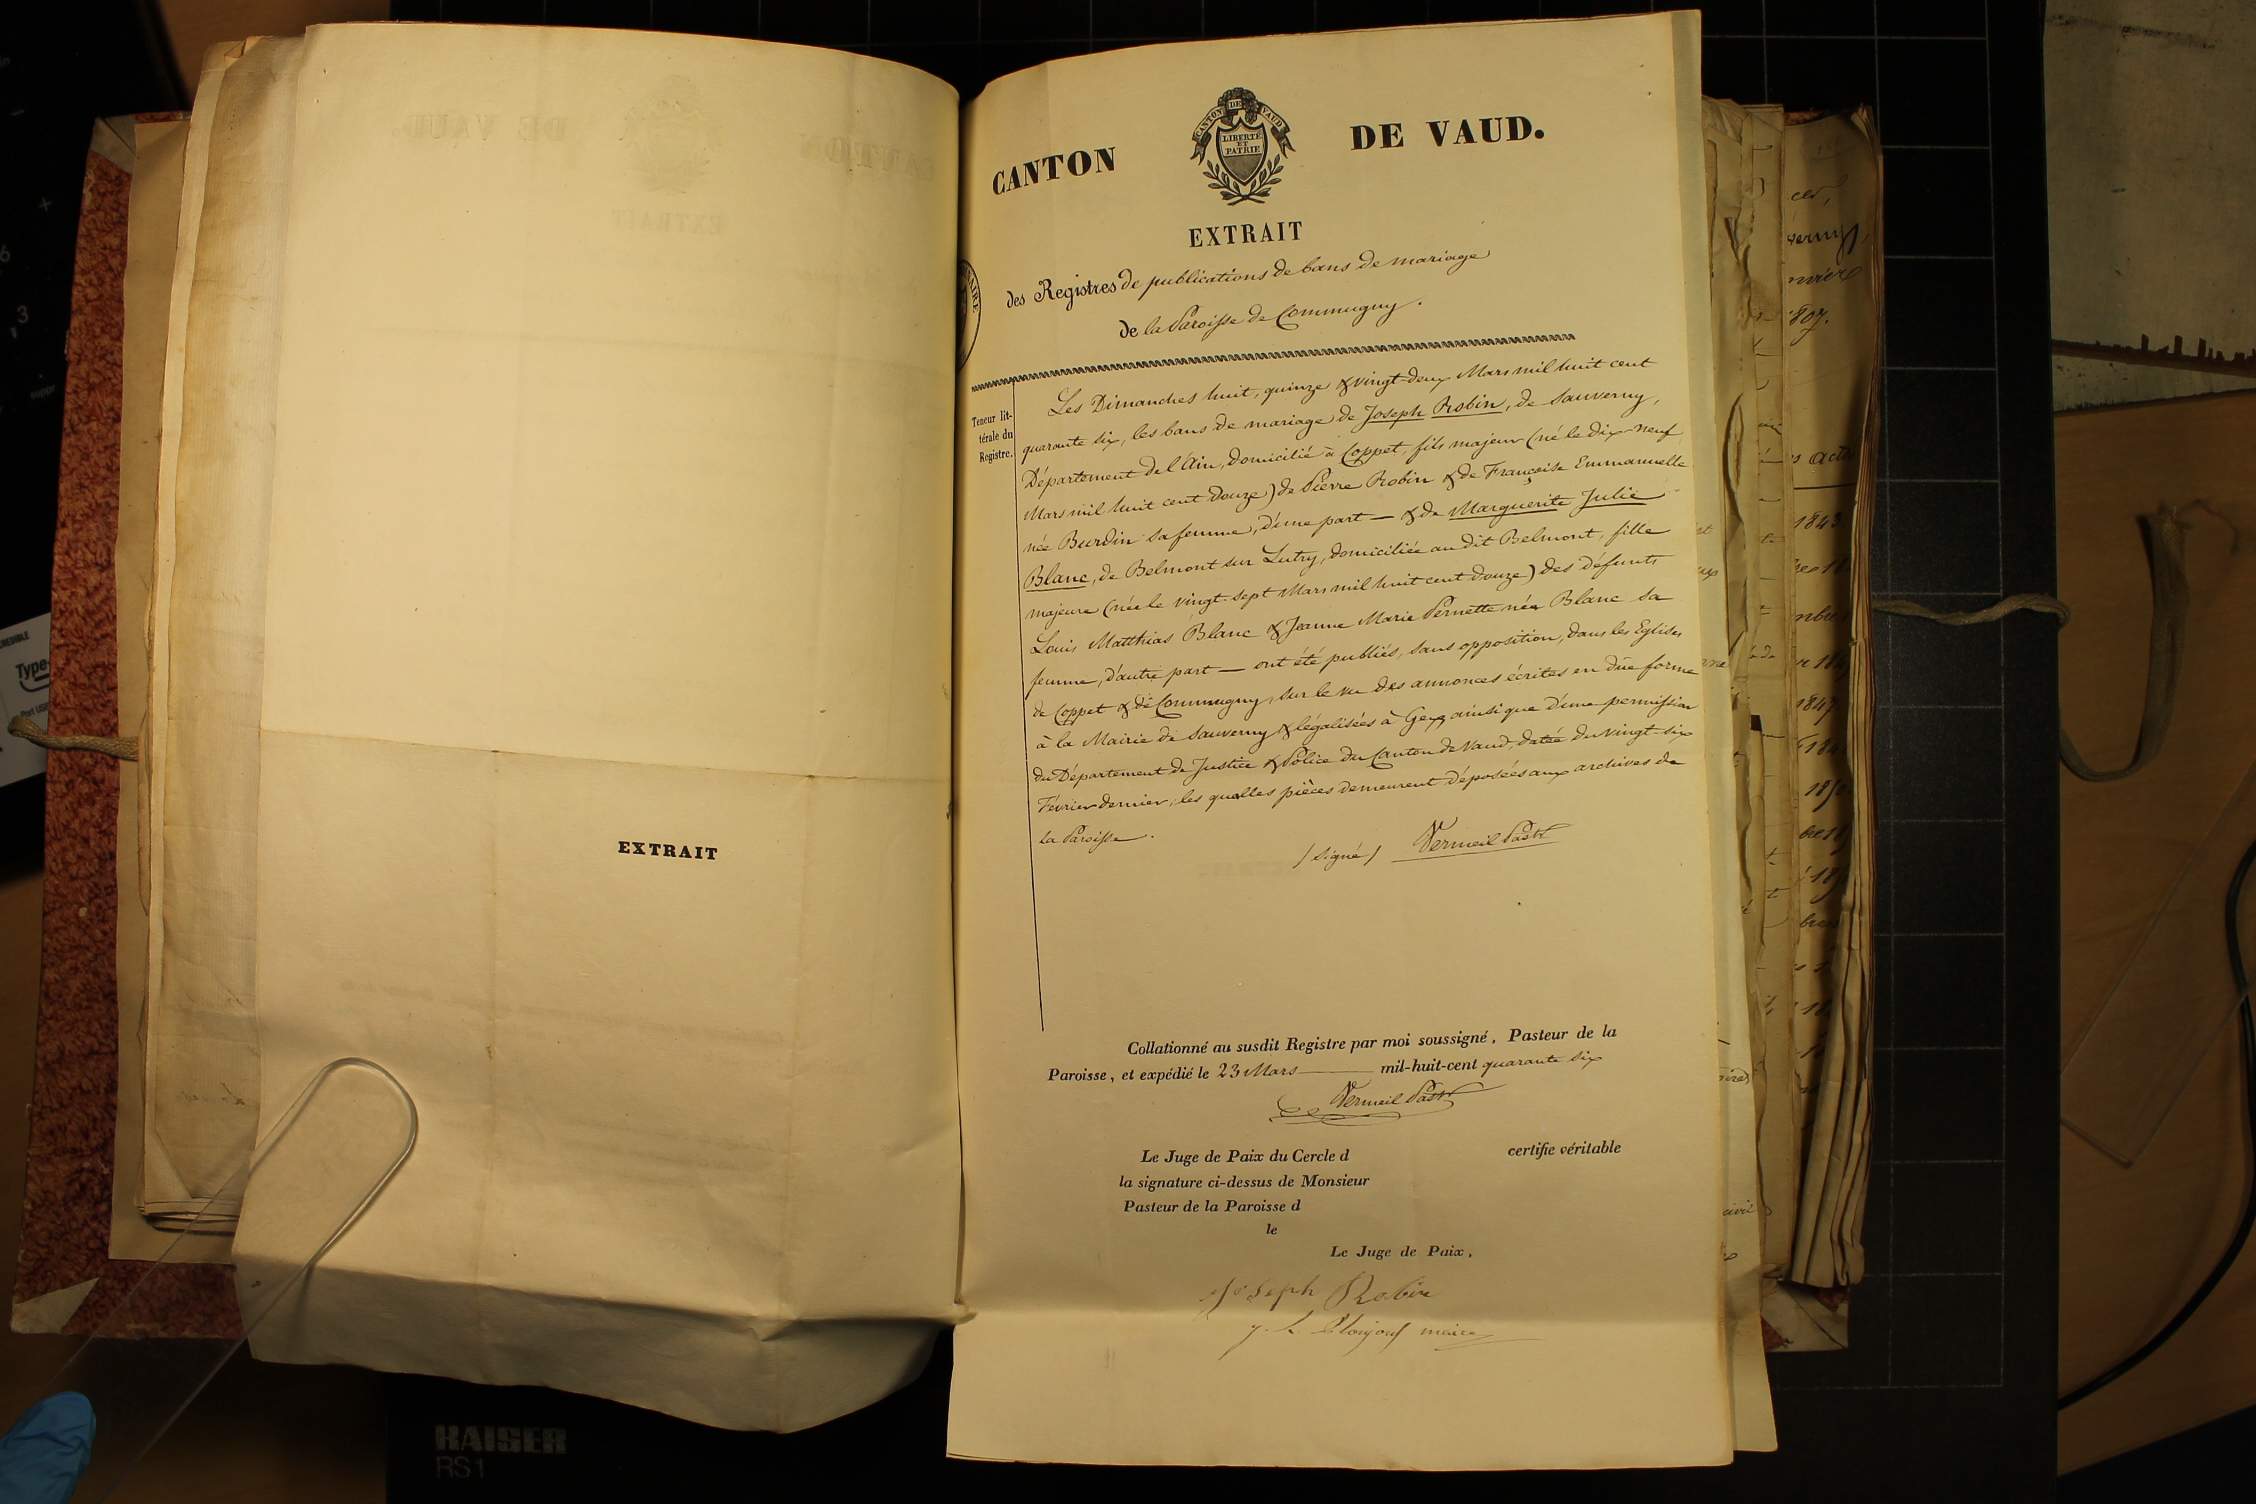 EXTRAIT
CANTON DE VAUD
LIBERTÉ
ET
PATRIE
CANTON DE VAUD.
EXTRAIT
des Registres de publications de bans de mariage
de la Paroisse de Commugny.
Teneur lit-
térale du
Registre.
Les Dimanches huit, quinze & vingt-deux Mars mil huit cent
quarante six, les bans de mariage de Joseph Robin, de Sauverny,
Département de l'Ain, domicilié à Coppet, fils majeur (né le dix-neuf
Mars mil huit cent douze) de Pierre Robin & de Françoise Emmanuelle
née Burdin sa femme, d'une part — & de Marguerite Julie
Blanc, de Belmont sur Lutry, domiciliée au dit Belmont, fille
majeure (née le vingt-sept Mars mil huit cent douze) des défunts
Louis Matthias Blanc & Jeanne Marie Pernette née Blanc sa
femme, d'autre part — ont été publiés, sans opposition, dans les Eglises
de Coppet & de Commugny, sur le vu des annonces écrites en due forme
à la Mairie de Sauverny & légalisées à Gex, ainsi que d'une permission
du Département de Justice & Police du Canton de Vaud, datée du vingt-six
Février dernier, les quelles pièces demeurent déposées aux archives de
la Paroisse.
/ signé / Vermeil Past.
Collationné au susdit Registre par moi soussigné, Pasteur de la
Paroisse, et expédié le 23 Mars mil-huit-cent quarante six
Vermeil Past.
Le Juge de Paix du Cercle d certifie véritable
la signature ci-dessus de Monsieur
Pasteur de la Paroisse d
le
Le Juge de Paix,
Joseph Robin
maire
KAISER
RS 1